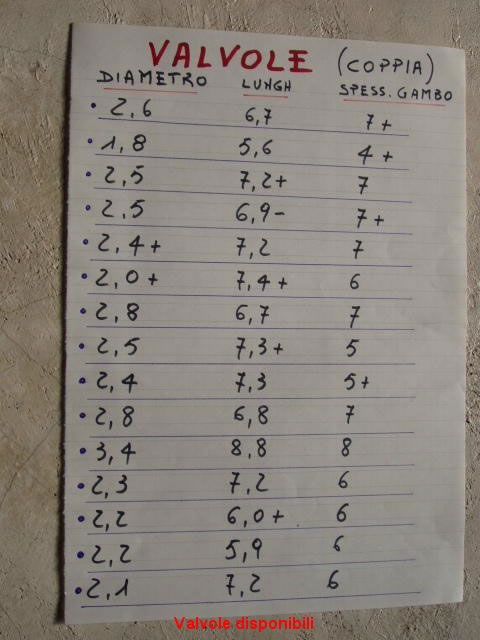 VALVOLE (COPPIA)
DIAMETRO LUNGH SPESS. GAMBO
• 2,6 6,7 7+
• 1,8 5,6 4+
• 2,5 7,2+ 7
• 2,5 6,9- 7+
• 2,4+ 7,2 7
• 2,0+ 7,4+ 6
• 2,8 6,7 7
• 2,5 7,3+ 5
• 2,4 7,3 5+
• 2,8 6,8 7
• 3,4 8,8 8
• 2,3 7,2 6
• 2,2 6,0+ 6
• 2,2 5,9 6
• 2,1 7,2 6
Valvole disponibili